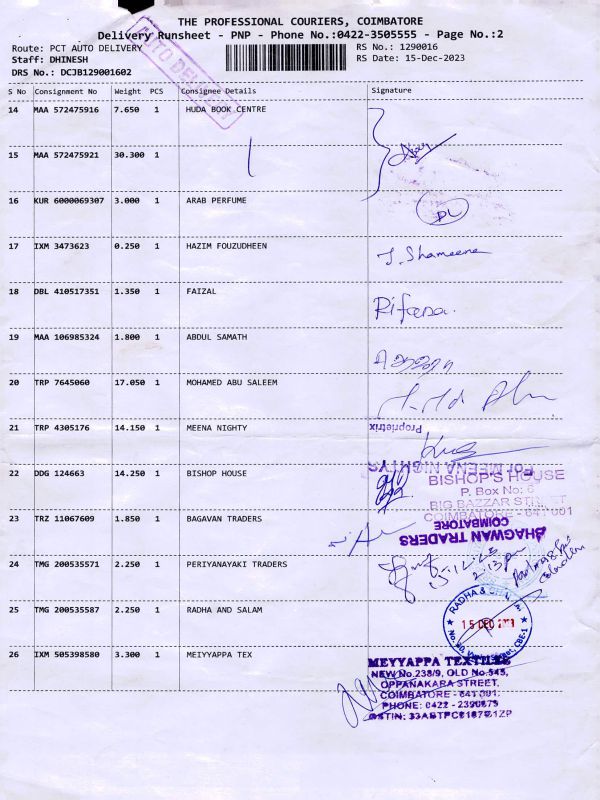 THE PROFESSIONAL COURIERS, COIMBATORE
Delivery Runsheet - PNP - Phone No.:0422-3505555 - Page No.:2
Route: PCT AUTO DELIVERY
Staff: DHINESH
DRS No.: DCJB129001602
RS No.: 1290016
RS Date: 15-Dec-2023
AUTO DELIVERY
S No Consignment No Weight PCS Consignee Details Signature
14 MAA 572475916 7.650 1 HUDA BOOK CENTRE
15 MAA 572475921 30.300 1
16 KUR 6000069307 3.000 1 ARAB PERFUME DL
17 IXM 3473623 0.250 1 HAZIM FOUZUDHEEN J. Shameena
18 DBL 410517351 1.350 1 FAIZAL Rifana.
19 MAA 106985324 1.800 1 ABDUL SAMATH
20 TRP 7645060 17.050 1 MOHAMED ABU SALEEM
21 TRP 4305176 14.150 1 MEENA NIGHTY
Proprietrix
For MEENA NIGHTYS
22 DDG 124663 14.250 1 BISHOP HOUSE
BISHOP'S HOUSE
P. Box No: 6
BIG BAZZAR STREET
COIMBATORE - 641 001
23 TRZ 11067609 1.850 1 BAGAVAN TRADERS
BHAGWAN TRADERS
COIMBATORE
24 TMG 200535571 2.250 1 PERIYANAYAKI TRADERS
15-12-23
2.13pm
25 TMG 200535587 2.250 1 RADHA AND SALAM
RADHA &
15 DEC
CBE-1
26 IXM 505398580 3.300 1 MEIYYAPPA TEX
MEYYAPPA TEXTILES
NEW No.238/9, OLD No.545,
OPPANAKARA STREET,
COIMBATORE - 641 001.
PHONE: 0422 - 2390875
GSTIN: